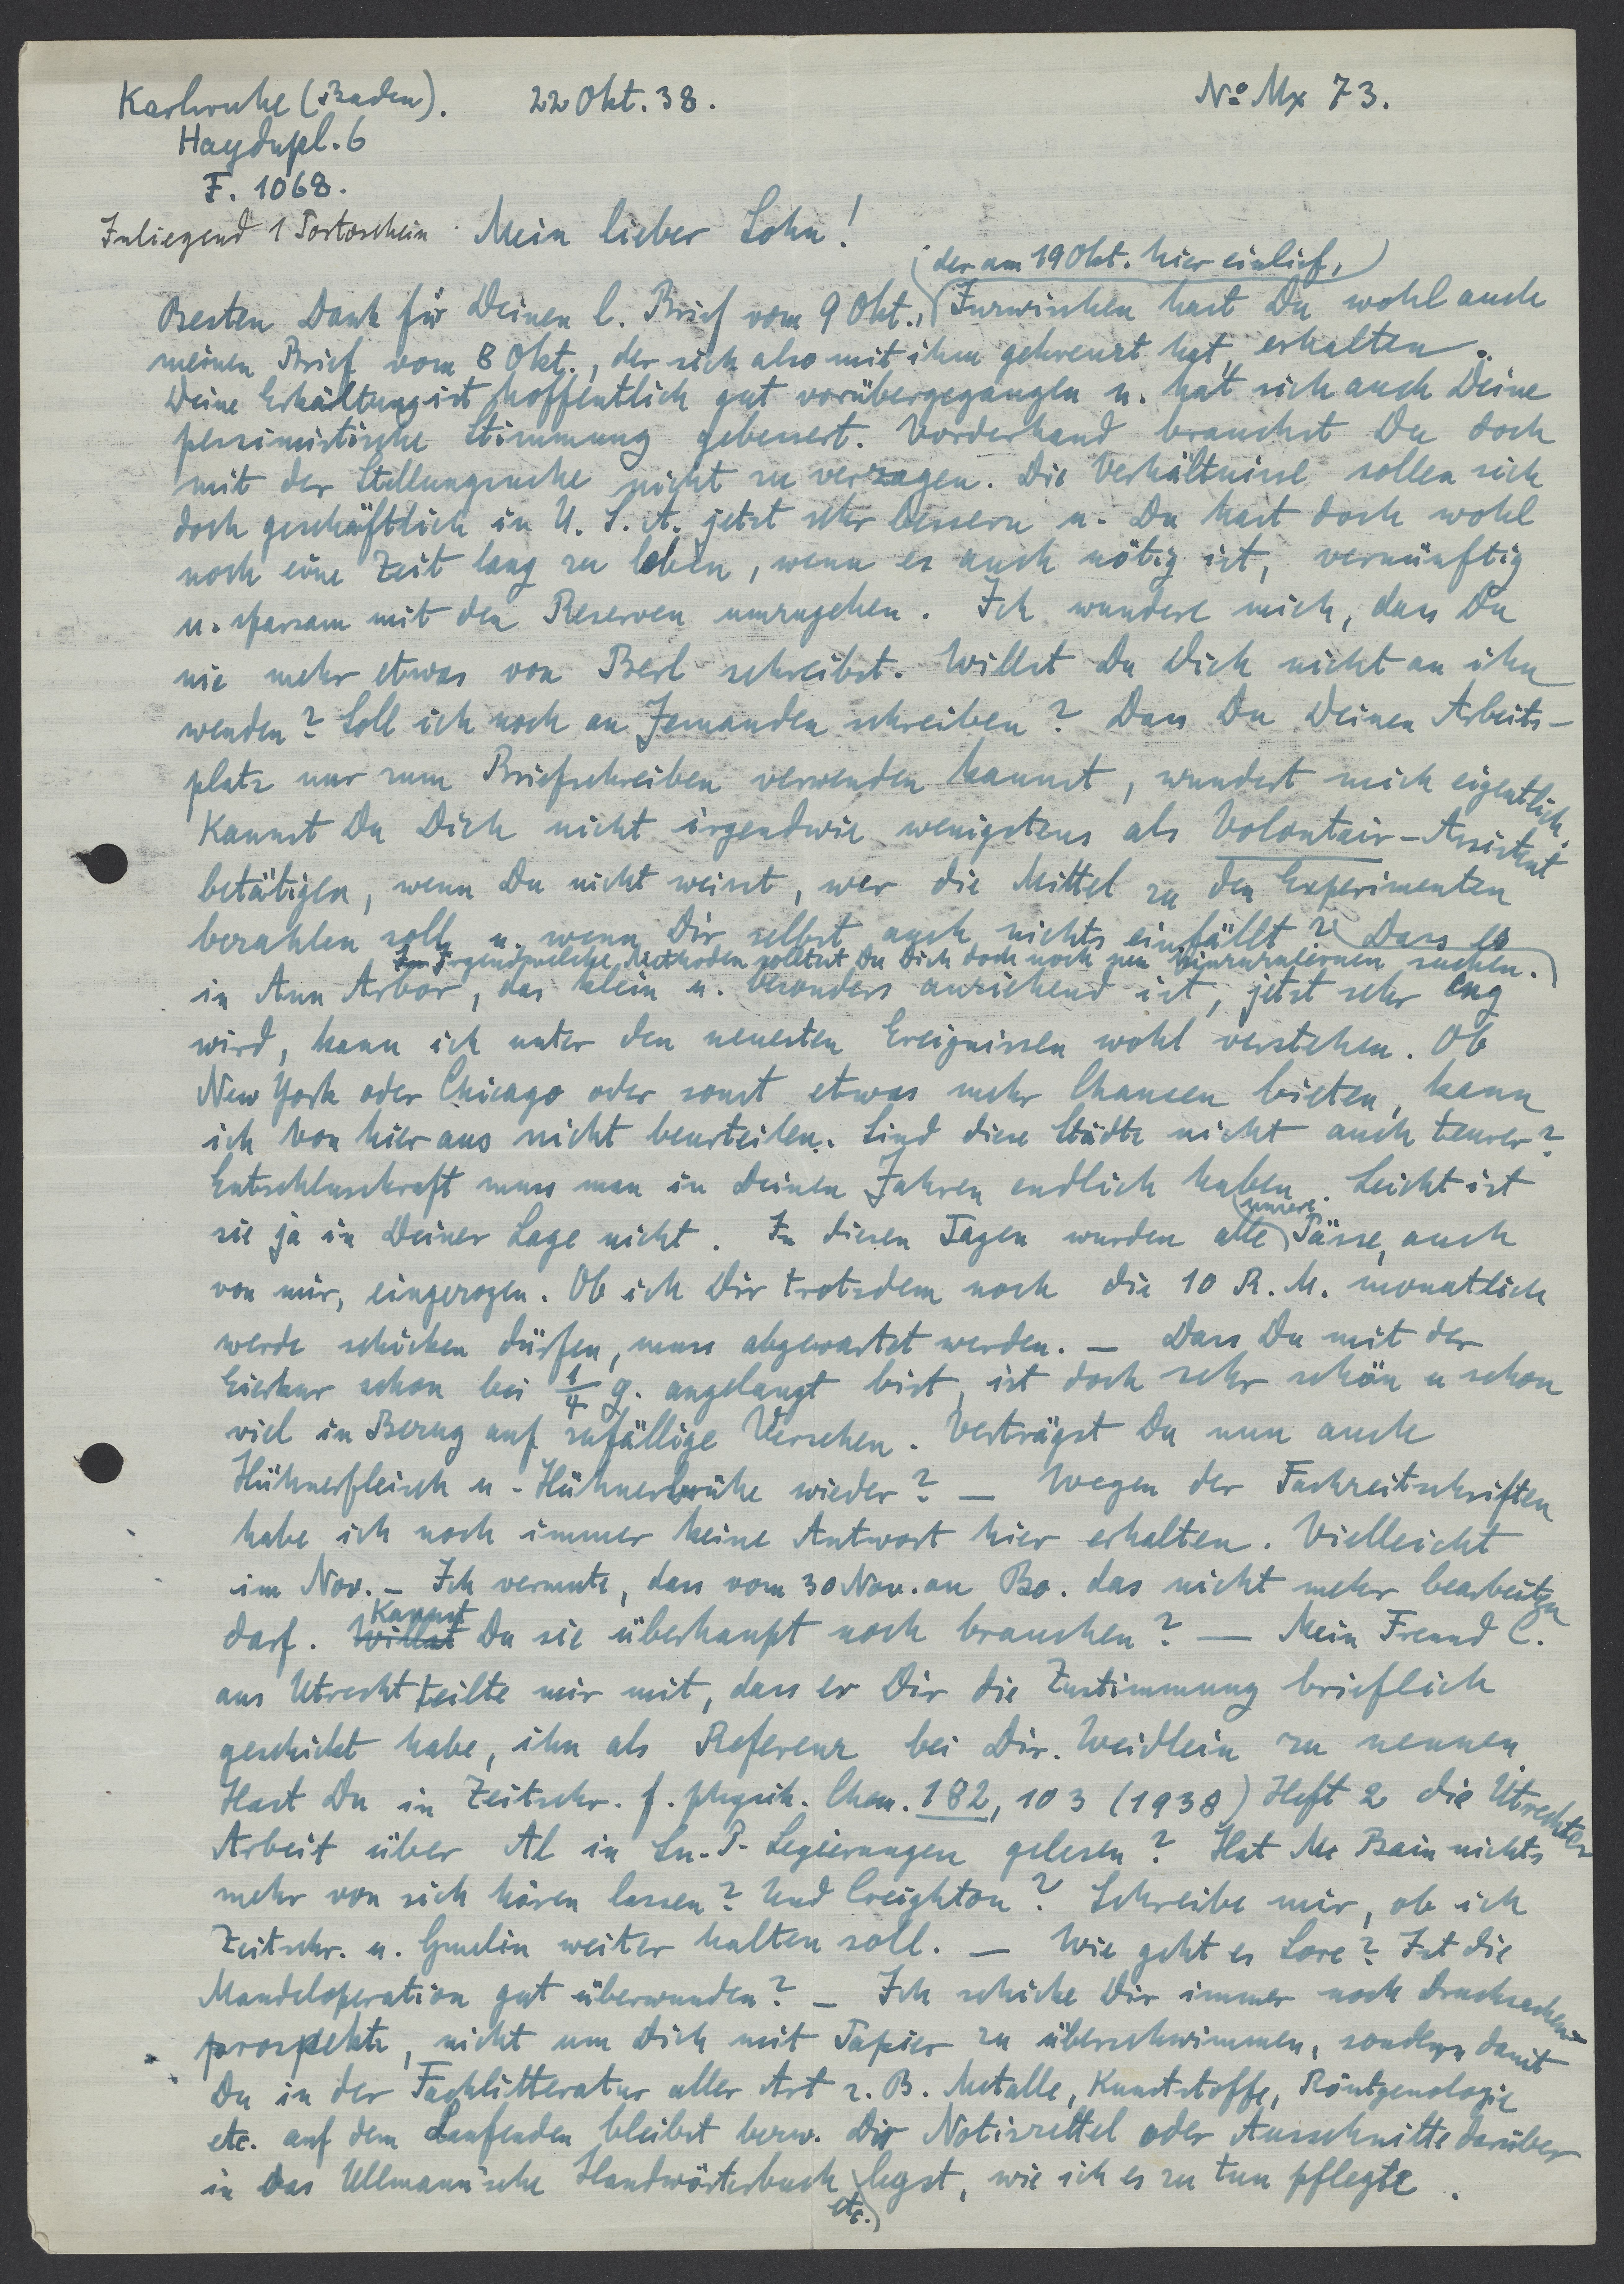 Karlsruhe (Baden). 22 Okt. 38. No Mx 73.
Haydnpl. 6
F. 1068.
Inliegend 1 Portoschein. Mein lieber Sohn!
(der am 19 Okt. hier einlief,)
Besten Dank für Deinen l. Brief vom 9 Okt., Inzwischen hast Du wohl auch
meinen Brief vom 8 Okt., der sich also mit ihm gekreuzt hat, erhalten.
Deine Erkältung ist hoffentlich gut vorübergegangen u. hat sich auch Deine
pessimistische Stimmung gebessert. Vorderhand brauchst Du doch
mit der Stellungsuche nicht zu verzagen. Die Verhältnisse sollen sich
doch geschäftlich in U.S.A. jetzt sehr bessern u. Du hast doch wohl
noch eine Zeit lang zu leben, wenn es auch nötig ist, vernünftig
u. sparsam mit den Reserven umzugehen. Ich wundere mich, dass Du
nie mehr etwas von Berl schreibst. Willst Du Dich nicht an ihn
wenden? Soll ich noch an Jemanden schreiben? Dass Du Deinen Arbeits-
platz nur zum Briefschreiben verwenden kannst, wundert mich eigentlich.
Kannst Du Dich nicht irgendwie wenigstens als Volontair-Assistent
betätigen, wenn Du nicht weisst, wer die Mittel zu den Experimenten
bezahlen soll u. wenn Dir selbst auch nichts einfällt? Dass es
Irgendwelche Methoden solltest Du Dich doch noch neu hinzuzulernen suchen.
in Ann Arbor, das klein u. besonders anziehend ist, jetzt sehr eng
wird, kann ich unter den neuesten Ereignissen wohl verstehen. Ob
New York oder Chicago oder sonst etwas mehr Chancen bieten, kann
ich von hier aus nicht beurteilen. Sind diese Städte nicht auch teurer?
Entschlusskraft muss man in Deinen Jahren endlich haben. Leicht ist
sie ja in Deiner Lage nicht. In diesen Tagen wurden alle unsere Pässe, auch
von mir, eingezogen. Ob ich Dir trotzdem noch die 10 R.M. monatlich
werde schicken dürfen, muss abgewartet werden. — Dass Du mit der
Eierkur schon bei 1/4 g. angelangt bist, ist doch sehr schön u schon
viel in Bezug auf zufällige Versehen. Verträgst Du nun auch
Hühnerfleisch u - Hühnerbrühe wieder? — Wegen der Fachzeitschriften
habe ich noch immer keine Antwort hier erhalten. Vielleicht
im Nov. — Ich vermute, dass vom 30 Nov. an Bo. das nicht mehr bearbeiten
darf. Willst Kannst Du sie überhaupt noch brauchen? — Mein Freund C.
aus Utrecht teilte mir mit, dass er Dir die Zustimmung brieflich
geschickt habe, ihn als Referenz bei Dir. Weidlein zu nennen
Hast Du in Zeitschr. f. physik. Chem. 182, 103 (1938) Heft 2 die Utrechter
Arbeit über Al in Sn-P- Legierungen gelesen? Hat Mc Bain nichts
mehr von sich hören lassen? Und Creighton? Schreibe mir, ob ich
Zeitschr. u. Gmelin weiter halten soll. — Wie geht es Lore? Ist die
Mandeloperation gut überwunden? — Ich schicke Dir immer noch Drucksachen-
prospekte, nicht um Dich mit Papier zu überschwimmen, sondern damit
Du in der Fachlitteratur aller Art z. B. Metalle, Kunststoffe, Röntgenologie
etc. auf dem Laufenden bleibst bezw. Dir Notizzettel oder Ausschnitte darüber
in das Ullmann'sche Handwörterbuch etc. legst, wie ich es zu tun pflegte.